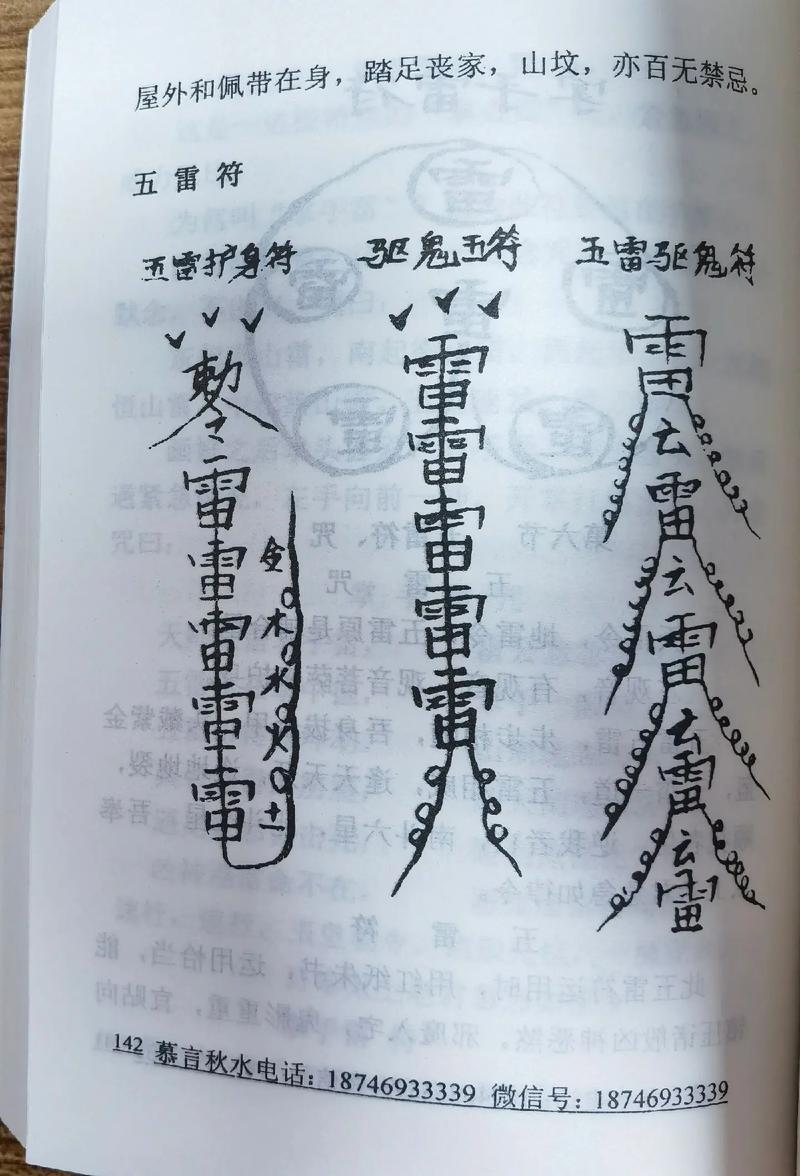 屋外和佩带在身，踏足丧家，山坟，亦百无禁忌。
五雷符
五雷护身符
敕令
雷
雷
雷
雷
雷
金
木
水
火
土
驱鬼五符
雷
雷
雷
雷
雷
五雷驱鬼符
雷
云
雷
云
雷
云
雷
云
雷
142 慕言秋水电话：18746933339 微信号：18746933339